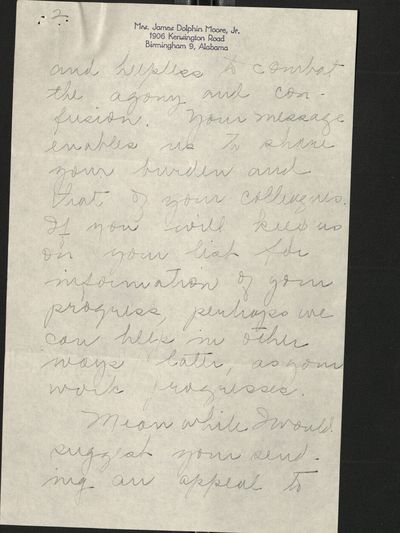 2
Mrs. James Dolphin Moore, Jr.
1906 Kensington Road
Birmingham 9, Alabama
and helpless to combat
the agony and con-
fusion. Your message
enables us to share
your burden and
that of your colleagues.
If you will keep us
on your list for
information of your
progress, perhaps we
can help in other
ways later, as your
work progresses.
Meanwhile I would
suggest your send-
ing an appeal to